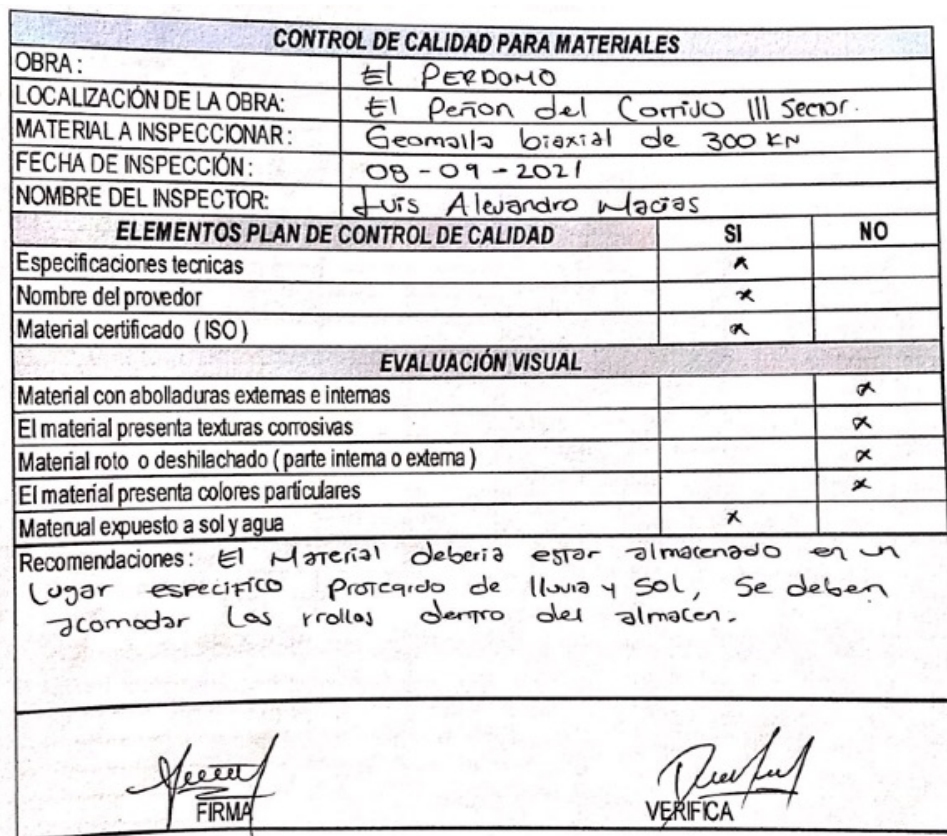 CONTROL DE CALIDAD PARA MATERIALES
OBRA: El PERDOMO
LOCALIZACIÓN DE LA OBRA: El Peñon del Cortijo III Sector.
MATERIAL A INSPECCIONAR: Geomalla biaxial de 300 KN
FECHA DE INSPECCIÓN: 08-09-2021
NOMBRE DEL INSPECTOR: Luis Alejandro Macias
ELEMENTOS PLAN DE CONTROL DE CALIDAD SI NO
Especificaciones tecnicas x
Nombre del provedor x
Material certificado (ISO) x
EVALUACIÓN VISUAL
Material con abolladuras externas e internas x
El material presenta texturas corrosivas x
Material roto o deshilachado (parte interna o externa) x
El material presenta colores particulares x
Materual expuesto a sol y agua x
Recomendaciones: El Material deberia estar almacenado en un
lugar especifico protegido de lluvia y sol, Se deben
acomodar los rrollos dentro del almacen.
FIRMA VERIFICA